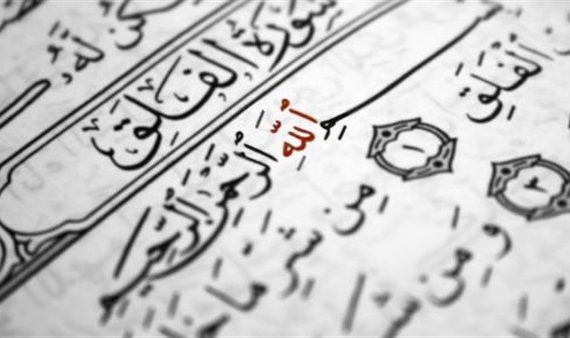 يَكُن لَّهُ
سُورَةُ الْفَلَقِ
بِسْمِ اللَّهِ الرَّحْمَٰنِ الرَّحِيمِ
الْفَلَقِ ١ مِن شَرِّ مَا
٢ وَمِن